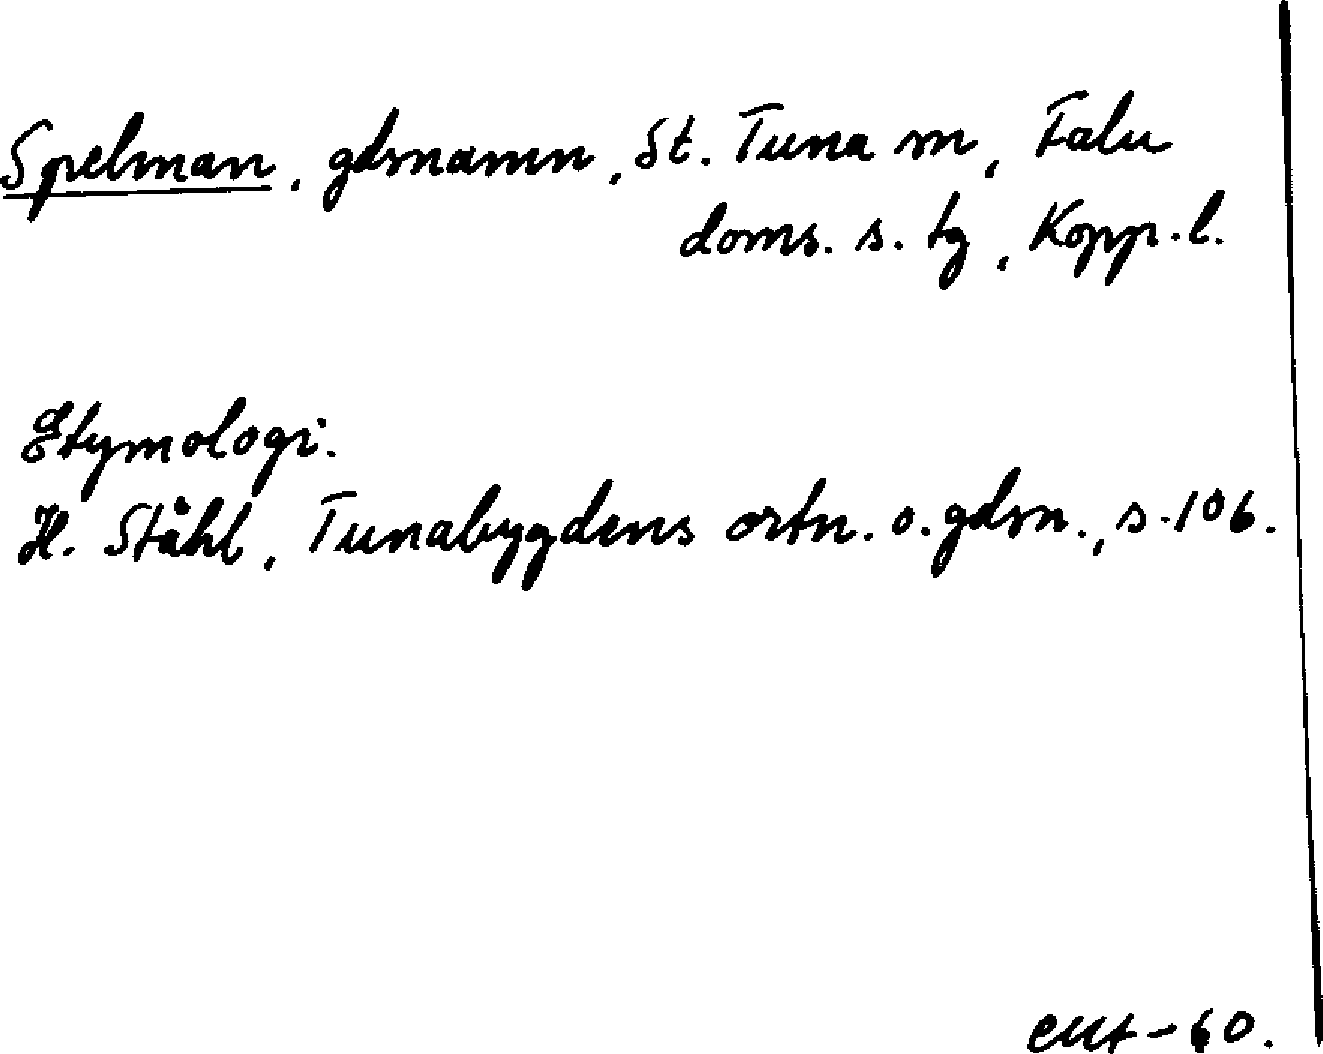 Spelman, gdsnamn, St. Tuna sn, Falu
doms. s. tg, Kopp. l.
Etymologi.
H. Ståhl, Tunabygdens ortn. o. gdsn., s. 106.